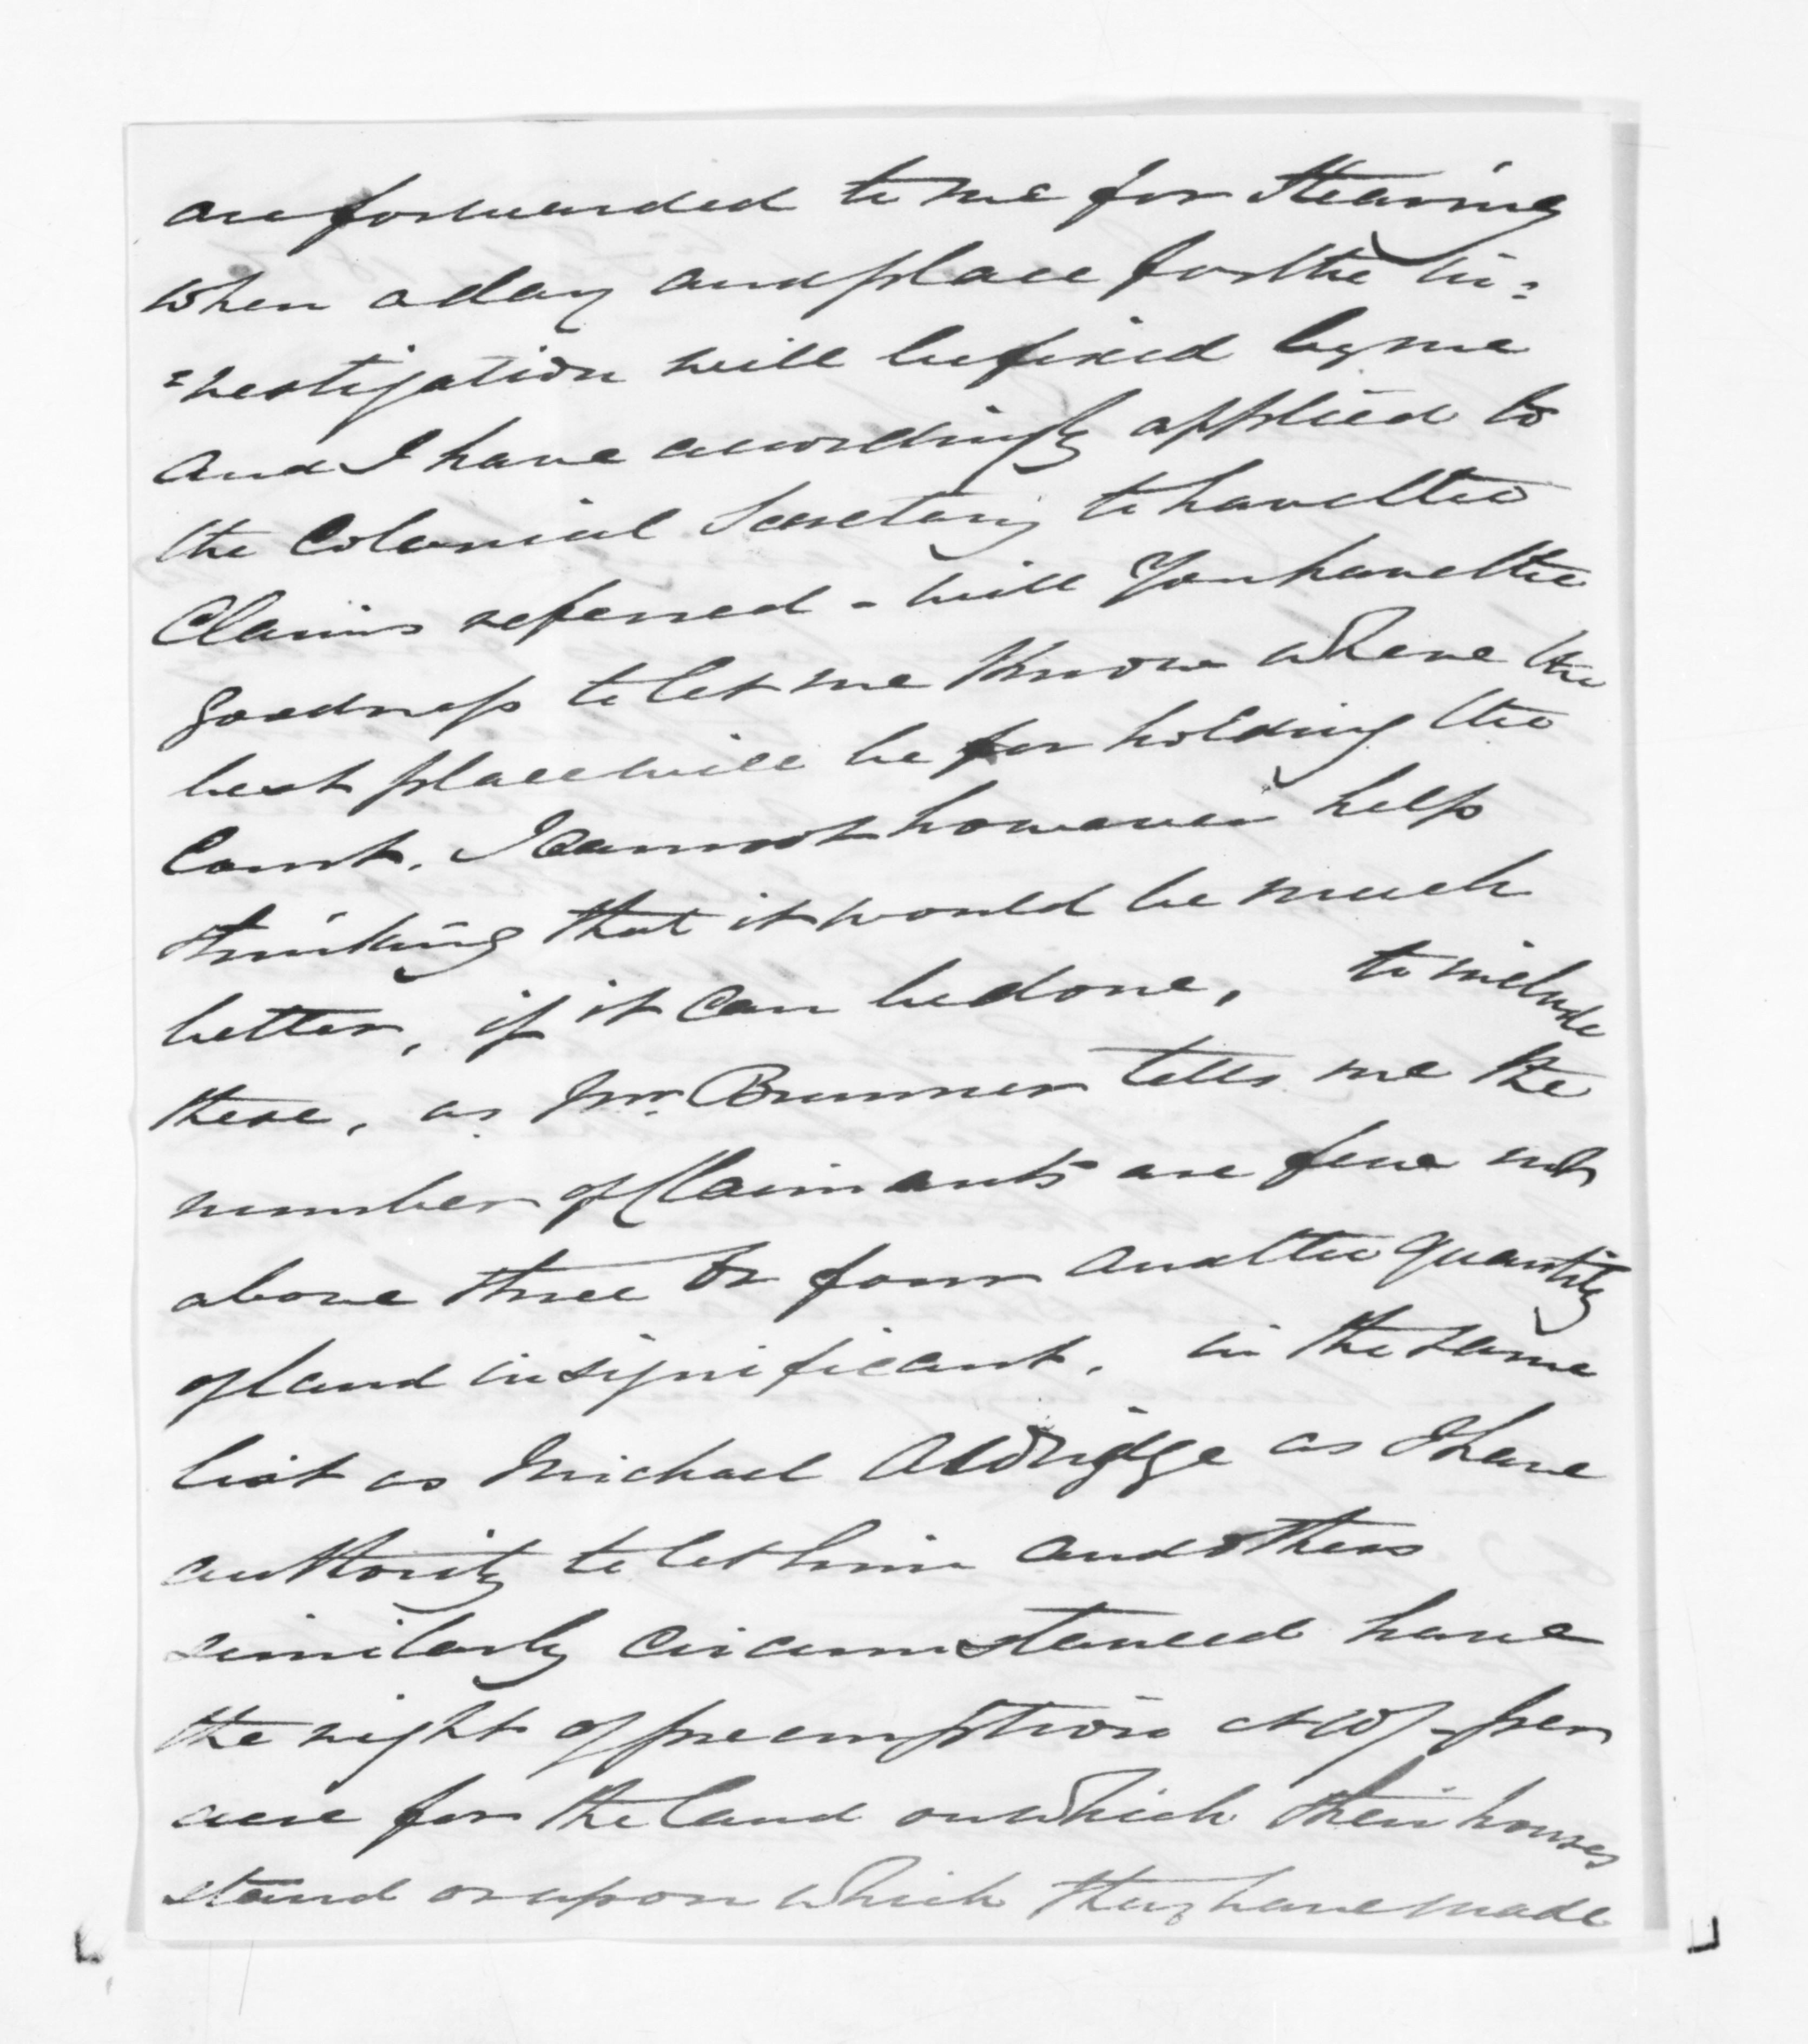 are forwarded to me for Hearing
when a day and place for the in=
=vestigation will be fixed by me
and I have accordingly applied to
the Colonial Secretary to have the
Claims referred - will you have the
goodness to let me know where the
best place will be for holding the
Court. I cannot however help
thinking that it would be much
better, if it can be done, to include
these, as Mr. Brunner tells me the
number of Claimants are few not
above three or four and the quantity
of land insignificant, in the same
list as Michael Aldridge as I have
authority to let him and others
similarly circumstanced have
the right of preemption at 10/- per
acre for the land on which their houses
stand or upon which they have made